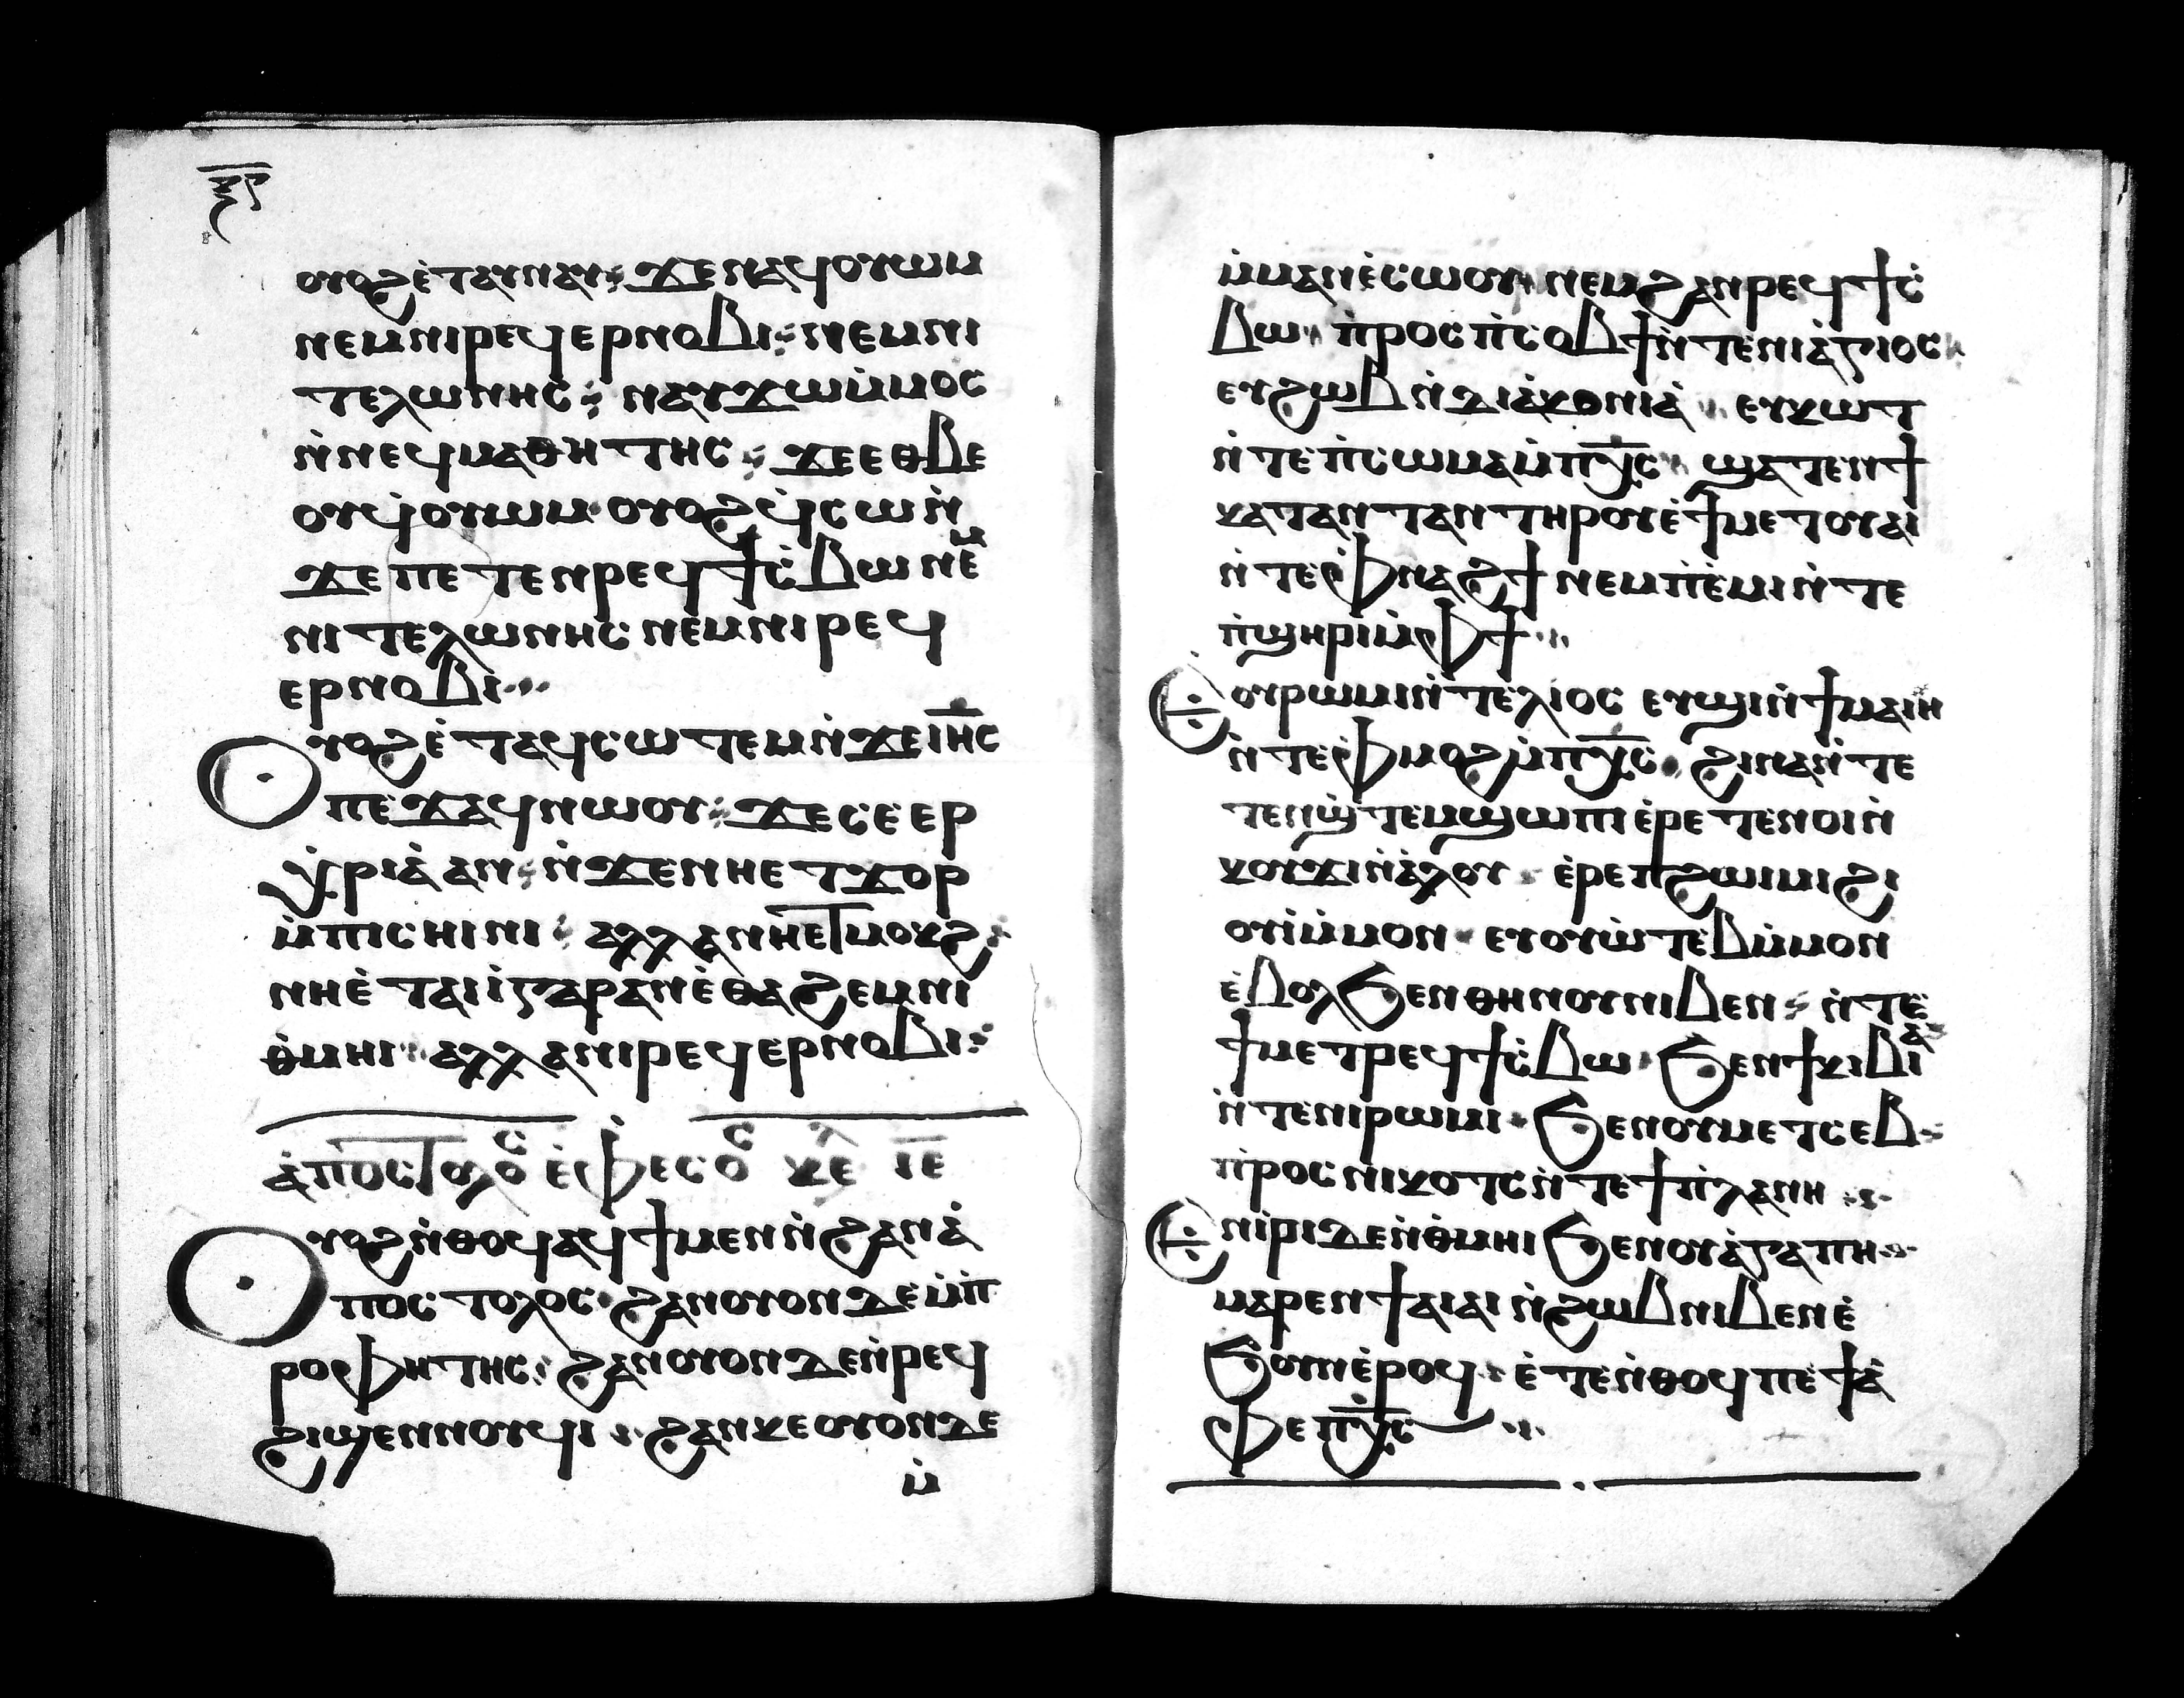 ⲝ̅ⲋ
ⲟⲩⲟϩ ⲉ̀ⲧⲁⲩⲛⲁⲩ ϫⲉ ⲛⲁϥⲟⲩⲱⲙ
ⲛⲉⲙ ⲛⲓⲣⲉϥⲉⲣⲛⲟⲃⲓ ⲛⲉⲙ ⲛⲓ
ⲧⲉⲗⲱⲛⲏⲥ ⲛⲁⲩϫⲱ ⲙ̀ⲙⲟⲥ
ⲛ̀ⲛⲉϥⲙⲁⲑⲏⲧⲏⲥ ϫⲉ ⲉⲑⲃⲉ
ⲟⲩ ϥ̀ⲟⲩⲱⲙ ⲟⲩⲟϩ ϥ̀ⲥⲱ ⲛ̀
ϫⲉ ⲡⲉⲧⲉⲛⲣⲉϥϯⲥ̀ⲃⲱ ⲛⲉⲙ
ⲛⲓⲧⲉⲗⲱⲛⲏⲥ ⲛⲉⲙ ⲛⲓⲣⲉϥ
ⲉⲣⲛⲟⲃⲓ
ⲟⲩⲟϩ ⲉ̀ⲧⲁϥⲥⲱⲧⲉⲙ ⲛ̀ϫⲉ ⲓⲏ̅ⲥ
ⲡⲉϫⲁϥ ⲛⲱⲟⲩ ϫⲉ ⲥⲉⲉⲣ
ⲭ̀ⲣⲓⲁ̀ ⲁⲛ ⲛ̀ϫⲉ ⲛⲏⲉⲧϫⲟⲣ
ⲙ̀ⲡⲓⲥⲏⲓⲛⲓ ⲁⲗⲗⲁ ⲛⲏⲉⲧⲙⲟⲕϩ
ⲛⲏⲉ̀ⲧⲁⲓⲓ̀ ⲅⲁⲣ ⲁⲛ ⲉ̀ⲑⲁϩⲉⲙ ⲛⲓ
ⲑ̀ⲙⲏⲓ ⲁⲗⲗⲁ ⲛⲓⲣⲉϥⲉⲣⲛⲟⲃⲓ
ⲁ̀ⲡⲟⲥⲧⲟⲗⲟⲥ ⲉ̀ⲫⲉⲥⲟⲥ ⲕⲉⲗ ⲓⲉ̅
ⲟⲩⲟϩ ⲛ̀ⲑⲟϥ ⲁϥϯ ⲙⲉⲛ ⲛ̀ϩⲁⲛⲁ̀
ⲡⲟⲥⲧⲟⲗⲟⲥ ϩⲁⲛⲟⲩⲟⲛ ⲇⲉ ⲙ̀ⲡ̀
ⲣⲟⲫⲏⲧⲏⲥ ϩⲁⲛⲟⲩⲟⲛ ⲇⲉ ⲛ̀ⲣⲉϥ
ϩⲓϣⲉⲛⲛⲟⲩϥⲓ ϩⲁⲛⲕⲉⲟⲩⲟⲛ ⲇⲉ
ⲙ̀
ⲙ̀ⲙⲁⲛⲉ̀ⲥⲱⲟⲩ ⲛⲉⲙ ϩⲁⲛⲣⲉϥϯⲥ̀
ⲃⲱ ⲡ̀ⲣⲟⲥ ⲡ̀ⲥⲟⲃϯ ⲛ̀ⲧⲉ ⲛⲓⲁ̀ⲅⲓⲟⲥ
ⲉⲩϩⲱⲃ ⲛ̀ⲇⲓⲁ̀ⲕⲟⲛⲓⲁ̀ ⲉⲩⲕⲱⲧ
ⲛ̀ⲧⲉ ⲡ̀ⲥⲱⲙⲁ ⲙ̀ⲡⲭ̅ⲥ ϣⲁⲧⲉⲛϯ
ⲕⲁⲧⲁⲛⲧⲁⲛ ⲧⲏⲣⲟⲩ ⲉ̀ϯⲙⲉⲧⲟⲩⲁⲓ
ⲛ̀ⲧⲉ ⲫ̀ⲛⲁϩϯ ⲛⲉⲙ ⲡ̀ⲉ̀ⲙⲓ ⲛ̀ⲧⲉ
ⲡ̀ϣⲏⲣⲓ ⲙ̀ⲫϯ
ⲉⲟⲩⲣⲱⲙⲓ ⲛ̀ⲧⲉⲗⲓⲟⲥ ⲉⲩϣⲓ ⲛ̀ϯⲙⲁⲓⲏ
ⲛ̀ⲧⲉ ⲫ̀ⲙⲟϩ ⲙ̀ⲡⲭ̅ⲥ ϩⲓⲛⲁ ⲛ̀ⲧⲉ
ⲧⲉⲛϣ̀ⲧⲉⲙϣⲱⲡⲓ ⲉ̀ⲣⲉⲧⲉⲛⲟⲓ ⲛ̀
ⲕⲟⲩϫⲓ ⲛ̀ⲁ̀ⲗⲟⲩ ⲉ̀ⲣⲉ ⲡϩⲱⲓⲙⲓ ϩⲓ
ⲟⲩⲓ̀ ⲙ̀ⲙⲟⲛ ⲉⲩⲟⲩⲱ̀ⲧⲉⲃ ⲙ̀ⲙⲟⲛ
ⲉ̀ⲃⲟⲗ ϧⲉⲛ ⲑⲏⲛⲟⲩ ⲛⲓⲃⲉⲛ ⲛ̀ⲧⲉ
ϯⲙⲉⲧⲣⲉϥϯⲥ̀ⲃⲱ ϧⲉⲛ ϯⲕⲓⲃⲓⲁ̀
ⲛ̀ⲧⲉ ⲛⲓⲣⲱⲙⲓ ϧⲉⲛ ⲟⲩⲙⲉⲧⲥⲉⲃ
ⲡ̀ⲣⲟⲥ ⲛⲓⲕⲟⲧⲥ ⲛ̀ⲧⲉ ϯⲡ̀ⲗⲁⲛⲏ
ⲉⲛⲓ̀ⲣⲓ ⲇⲉ ⲛ̀ⲑ̀ⲙⲏⲓ ϧⲉⲛ ⲟⲩⲁ̀ⲅⲁⲡⲏ
ⲙⲁⲣⲉⲛϯⲁⲓⲁⲓ ⲛ̀ϩⲱⲃ ⲛⲓⲃⲉⲛ ⲉ̀
ϧⲟⲩⲛ ⲉ̀ⲣⲟϥ ⲉ̀ⲧⲉ ⲛ̀ⲑⲟϥ ⲡⲉ ϯⲁ̀
ⲫⲉ ⲡⲭ̅ⲥ